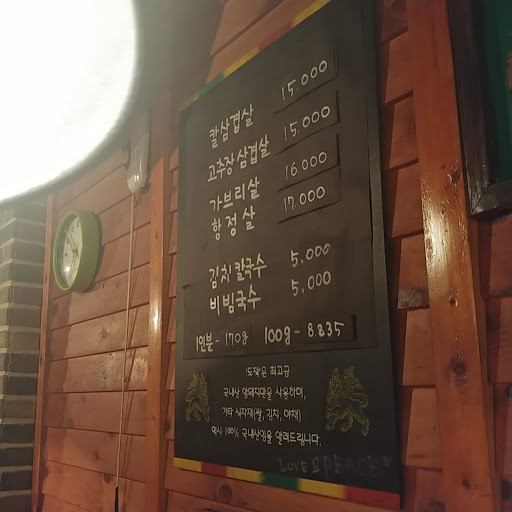 칼삼겹살 15.000
고추장삼겹살 15.000
가브리살 16.000
항정살 17.000
김치칼국수 5.000
비빔국수 5,000
1인분-170g 100g-8835
'도적'은 최고급
국내산 암퇘지만을 사용하며,
기타 식자재(쌀, 김치, 야채)
역시 100% 국내산임을 알려드립니다.
LOVE & PEACE